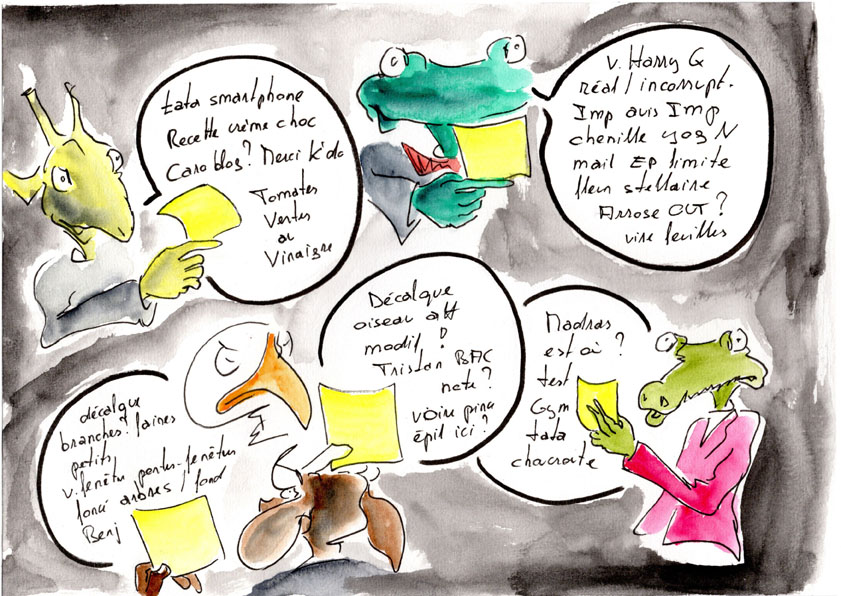 tata smartphone
Recette crème choc
Caro blog? Merci k'do
Tomates
Vertes
au
Vinaigre
v. Harry Q
réal / incorrupt.
Imp avis Imp
chenille N
mail EP limite
stellaire
Arrose OUT ?
vire feuilles
Décalque
oiseau att
modif !
Tristan BAC
note ?
voire
épil ici ?
Madras
est où ?
test
Gym
tata
choucroute
décalque
branches. laines
petits
v. fenêtre
foncé arbres / fond
Benj